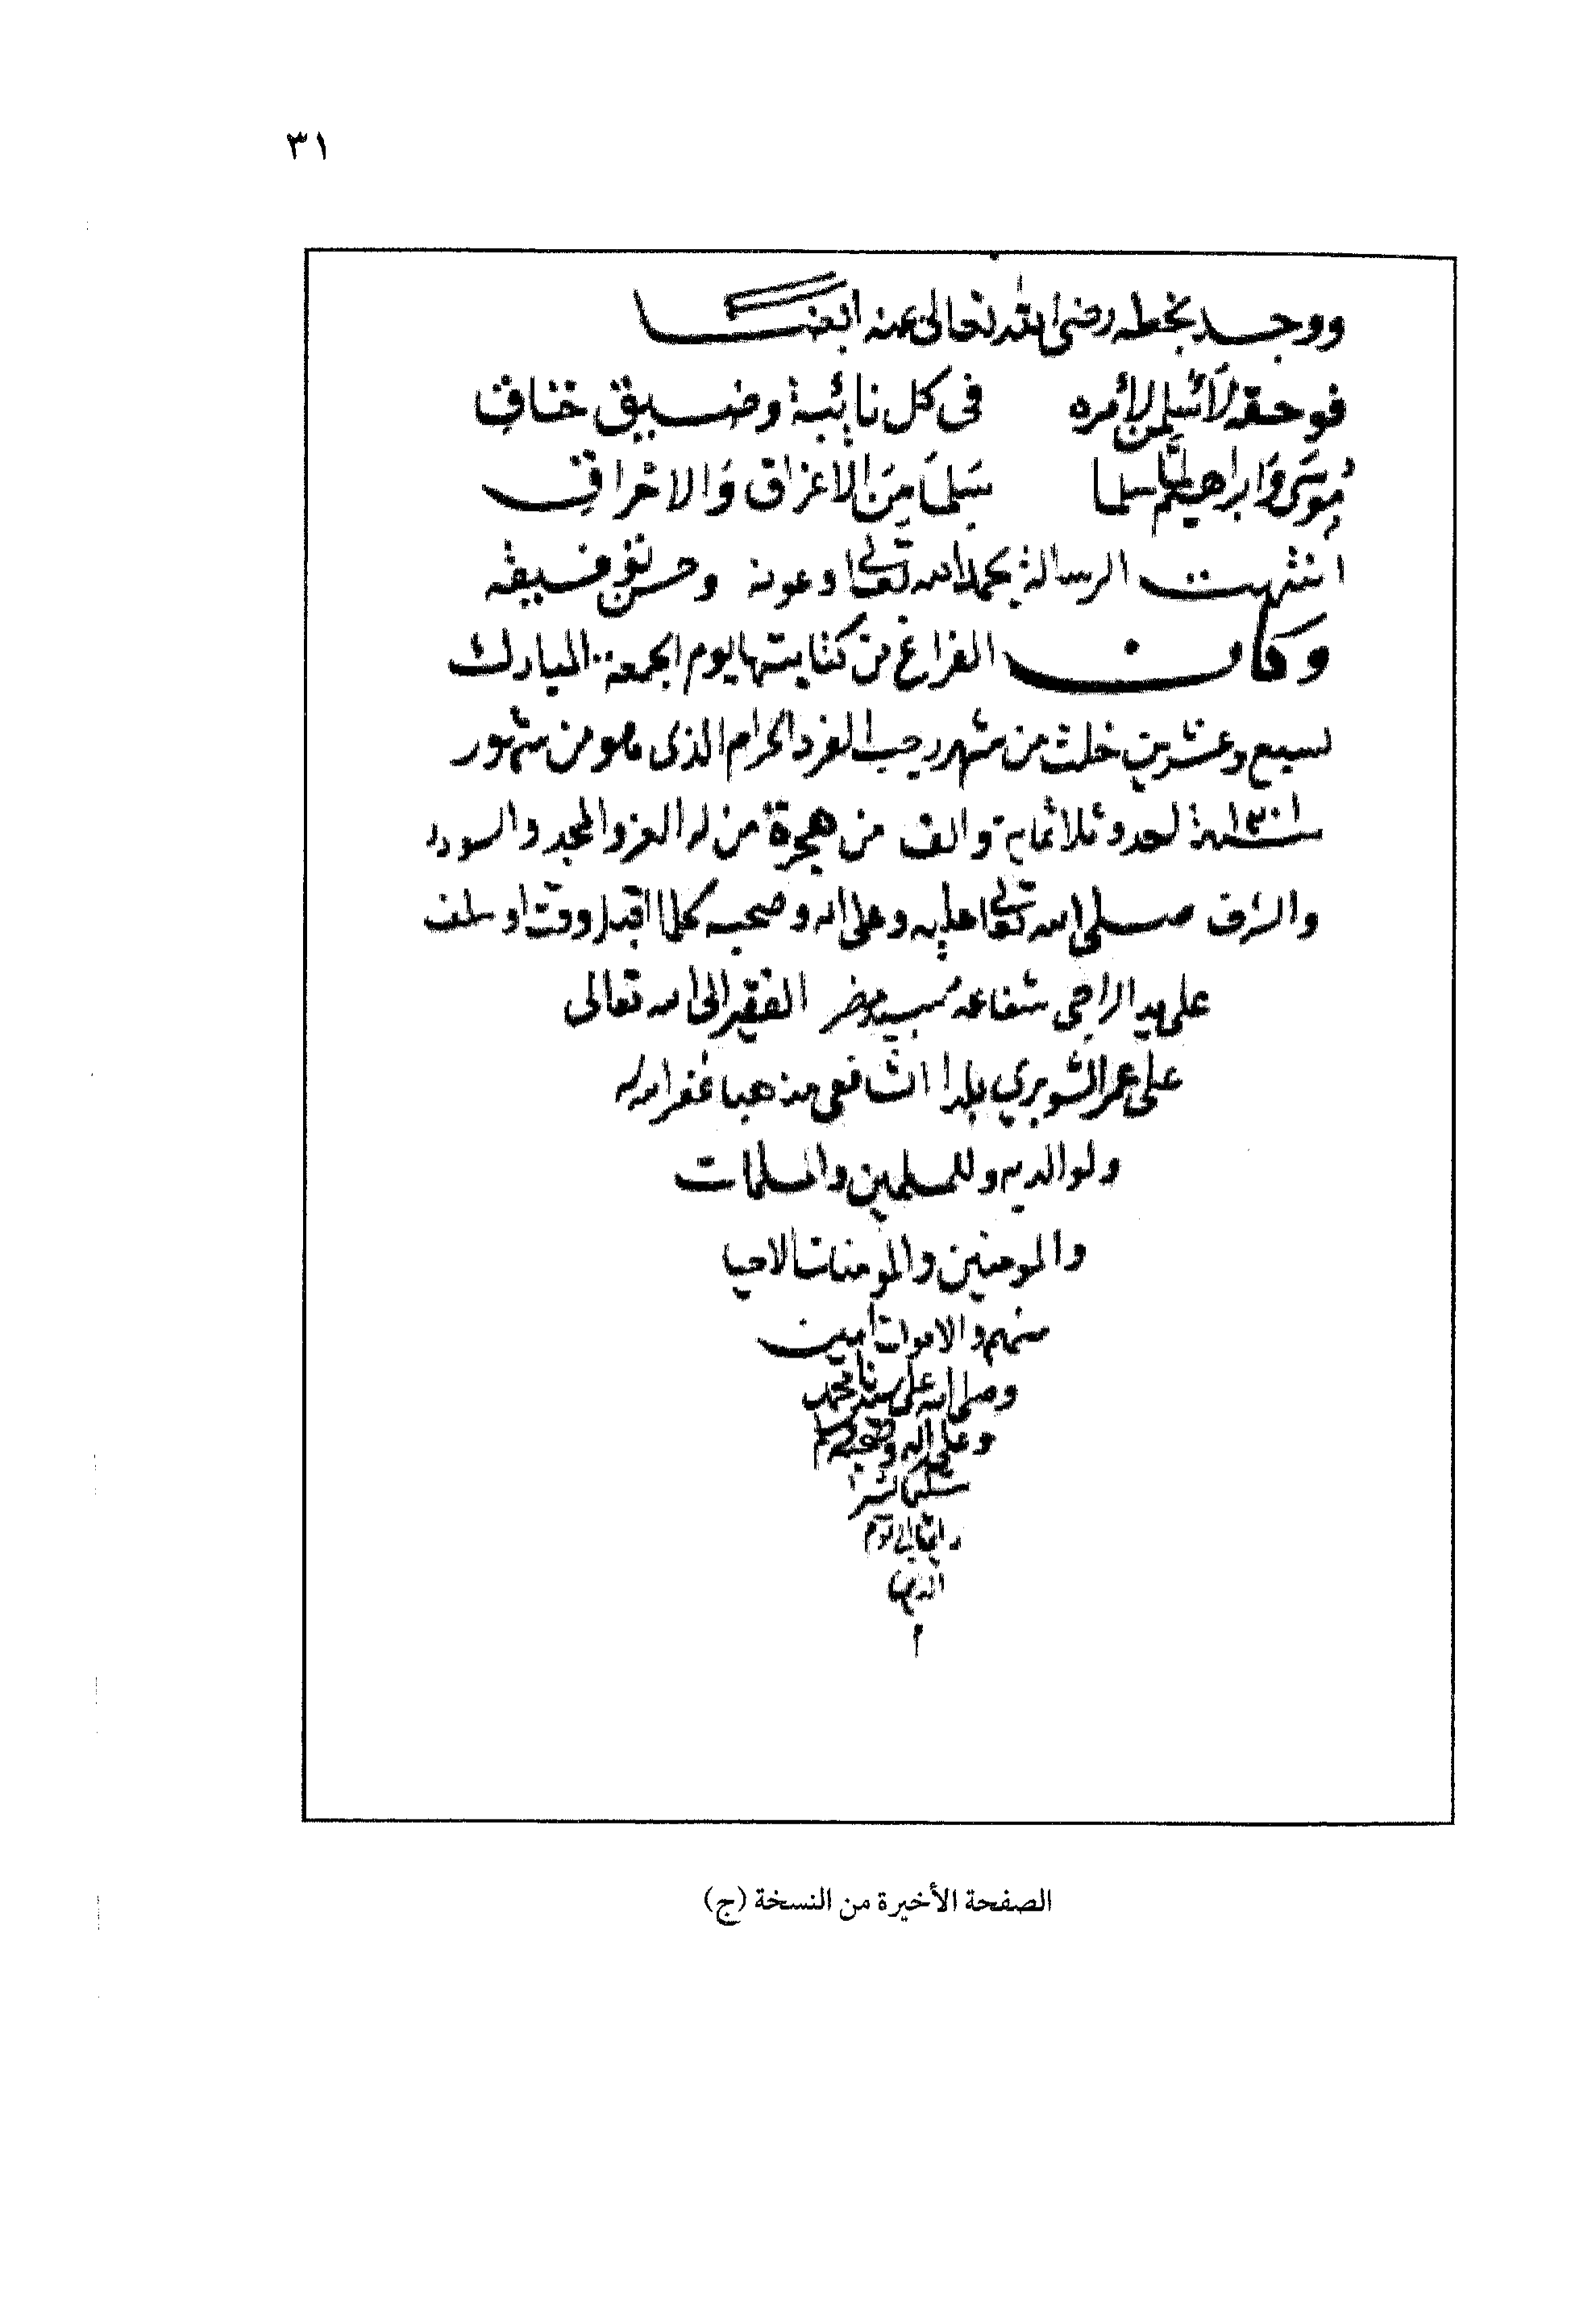 ٣١
ووجد بخطه رضى الله تعالى عنه ايضا
فوحقه لأسلمن لأمره في كل نائبة وضيق خناق
موسى وابراهيم لما سلما سلما من الاغراق والاحراق
انتهت الرسالة بحمد الله تعالى وعونه وحسن توفيقه
وكان الفراغ من كتابتها يوم الجمعة المبارك
لسبع وعشرين خلت من شهر رجب الفرد الحرام الذى هو من شهور
سنة ١٣٠١ احد وثلاثماية والف من هجرة من له العز والمجد والسودد
والشرف صلى الله تعالى عليه وعلى اله وصحبه كلما اقبل وقت او سلف
على يد الراجى شفاعة سيد مضر الفقير الى الله تعالى
على عمر الشوبري بلدا الشافعى مذهبا غفر الله له
ولوالديه وللمسلمين والمسلمات
والمومنين والمومنات الاحيا
منهم والاموات امين
وصلى الله على سيدنا محمد
وعلى اله وصحبه وسلم
تسليما كثيرا
دايما الى يوم
الدين
م
الصفحة الأخيرة من النسخة (ج)